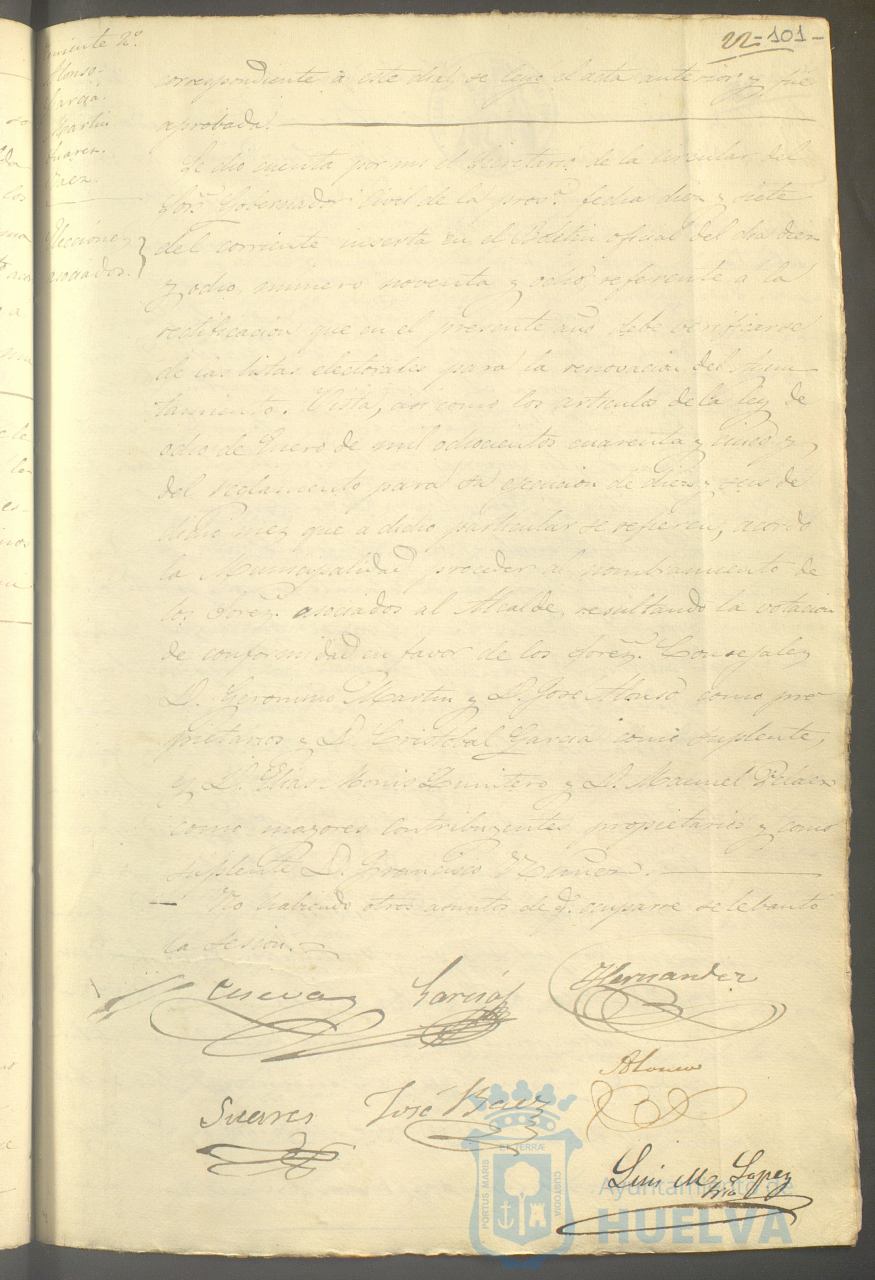 22=101-
Teniente 2º
Alonso.
García.
Martin
Suarez.
Baez.
Elecciones
asociados.
correspondiente á este dia, se leyo el acta anterior y fué
aprobada.
Se dio cuenta por mi el Secretario de la circular del
Sor. Gobernador Civil de la prova. fecha diez y siete
del corriente inserta en el Boletin oficial del dia diez
y ocho, numero noventa y ocho, referente á la
rectificacion que en el presente año debe verificarse
de las listas electorales para la renovacion del Ayun
tamiento. Vista, asi como los articulos de la ley de
ocho de Enero de mil ochocientos cuarenta y cinco y
del reclamento para su ejecucion de diez y seis de
dicho mez que a dicho particular se refieren, acordó
la Municipalidad proceder al nombramiento de
los Sores. asociados al Alcalde, resultando la votacion
de conformidad en favor de los Sores. Consejales
D. Geronimo Martin y D. José Alonso como pro
pietarios y D. Cristobal Garcia como suplente,
y D. Elias Monis Quintero y D. Manuel
como mayores contribuyentes propietarios y como
suplente D. Francisco Nuñez.
No habiendo otros asuntos de q. ocuparse se lebantó
la sesion.
Cueva Garcia Hernandez
Alonso
Suares José Baez
Luis M. Lopez
Srio
PORTUS MARIS ET TERRÆ CUSTODIA
Ayuntamiento de
HUELVA